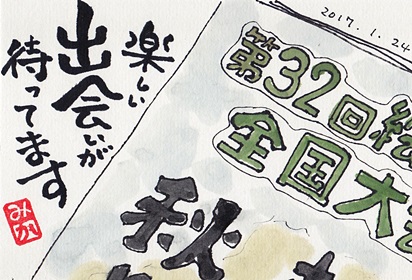 2017.1.24
楽しい
出会いが
待ってます
みか
第32回絵
全国大会
秋